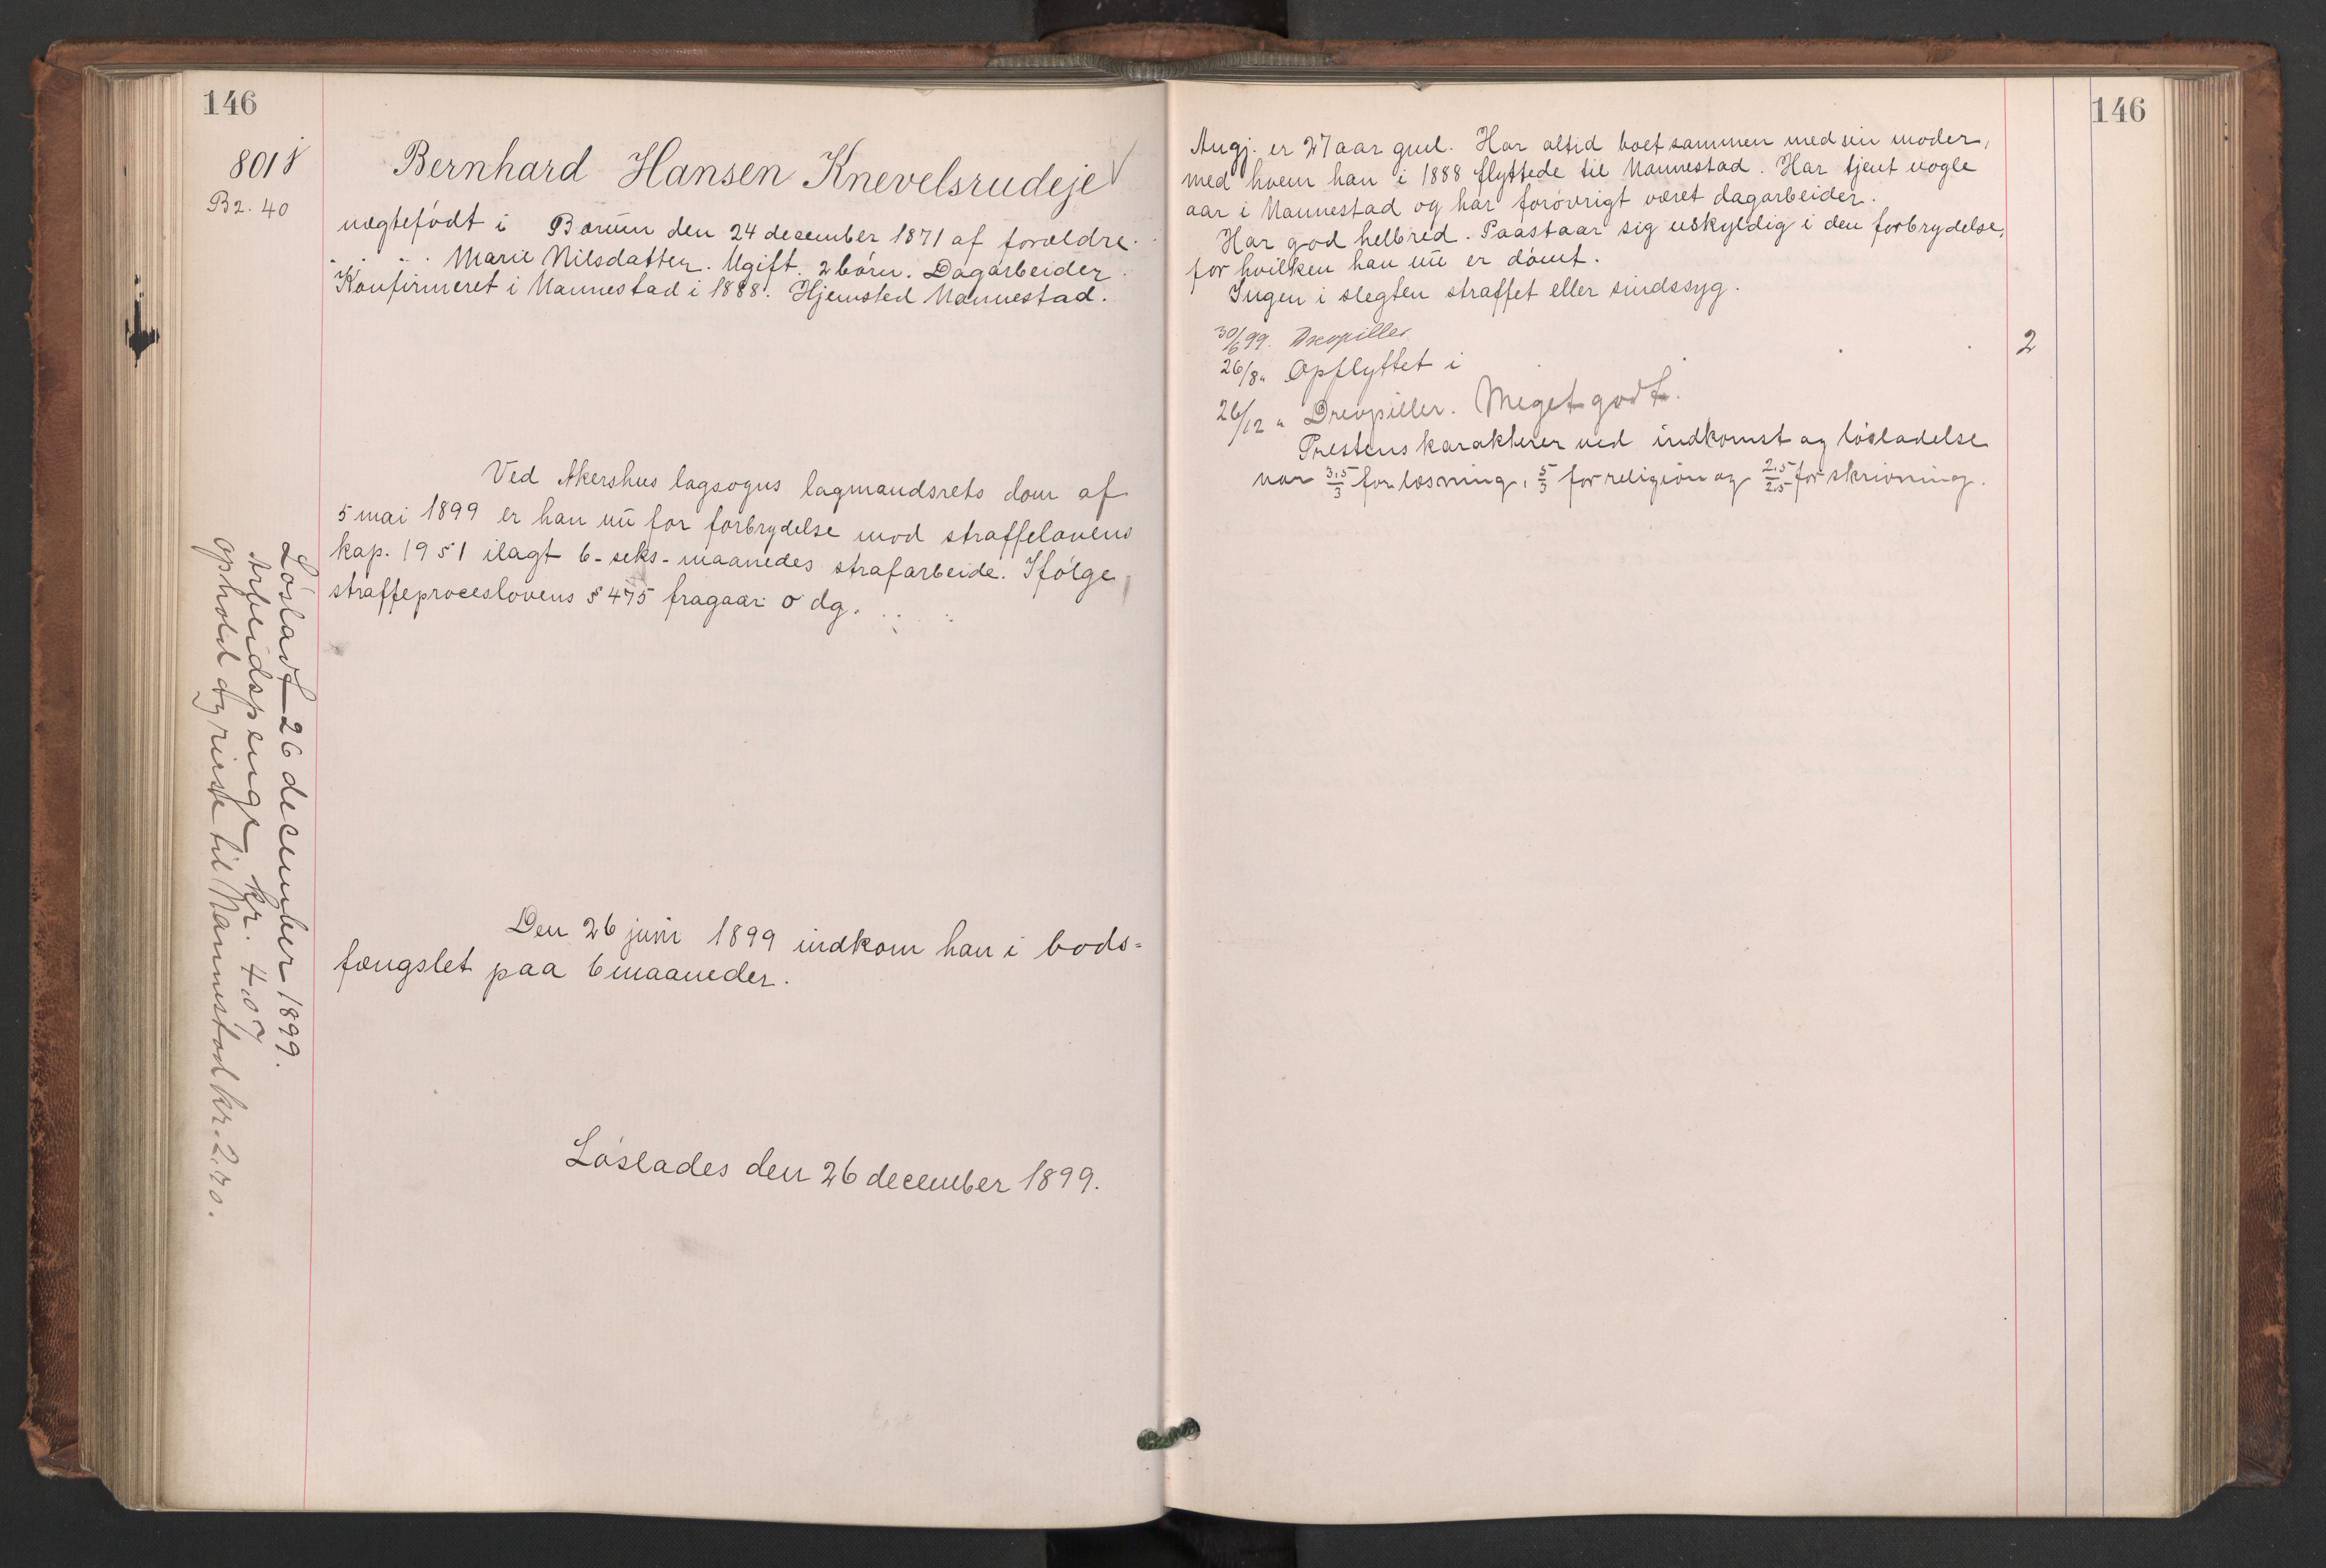 146
8018
B2. 40
Bernhard Hansen Knevelsrudeje
uægtefödt i Bærum den 24 december 1871 af forældre
Marie Nilsdatter. Ugift. 2 börn. Dagarbeider.
Konfirmeret i Nannestad i 1888. Hjemsted Nannestad.
Ved Akershus lagsogns lagmandsrets dom af
5 mai 1899 er han nu for forbrydelse mod straffelovens
kap. 19 51 ilagt 6 - seks - maanedes strafarbeide. Ifölge
straffeproceslovens § 475 fragaar 0 dg.
Den 26 juni 1899 indkom han i bods-
fængslet paa 6 maaneder.
Löslades den 26 december 1899.
Lösladt 26 december 1899.
Arbeidspenge kr. 4.07
ophold og reise til Nannestad kr. 2.70.
146
Angj. er 27 aar gml. Har altid boet sammen med sin moder,
med hvem han i 1888 flyttede til Nannestad. Har tjent nogle
aar i Nannestad og har forövrigt været dagarbeider.
Har god helbred. Paastaar sig uskyldig i den forbrydelse,
for hvilken han nu er dömt.
Ingen i slegten straffet eller sindssyg.
30/6 99. Drevpiller
26/8 " Opflyttet i 2
26/12 " Drevpiller. Meget godt.
Prestens karakterer ved indkomst og lösladelse
var 3.5/3 for læsning, 5/3 for religion og 2.5/2.5 for skrivning.